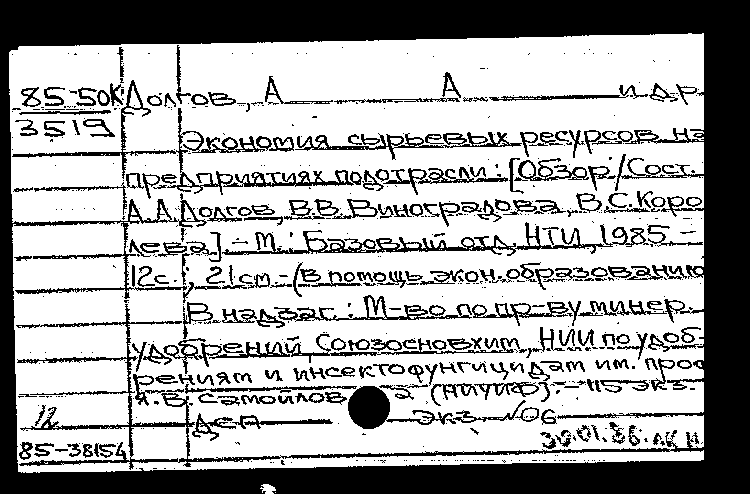 85-50К Долгов, А А и др
3519
Экономия сырьевых ресурсов на
предприятиях подотрасли : [Обзор / Сост.
А.А. Долгов, В.В. Виноградова, В.С. Коро
лева]. - М. : Базовый отд. НТИ, 1985. -
12с. ; 21 см. - (В помощь экон. образованию
В надзаг. : М-во по пр-ву минер.
удобрений, Союзосновхим, НИИ по удоб-
рениям и инсектофунгицидам им. проф
Я.В. Самойлова (НИУИФ). - 115 экз.
12 ДСП экз. №06
85-38154 30.01.86.